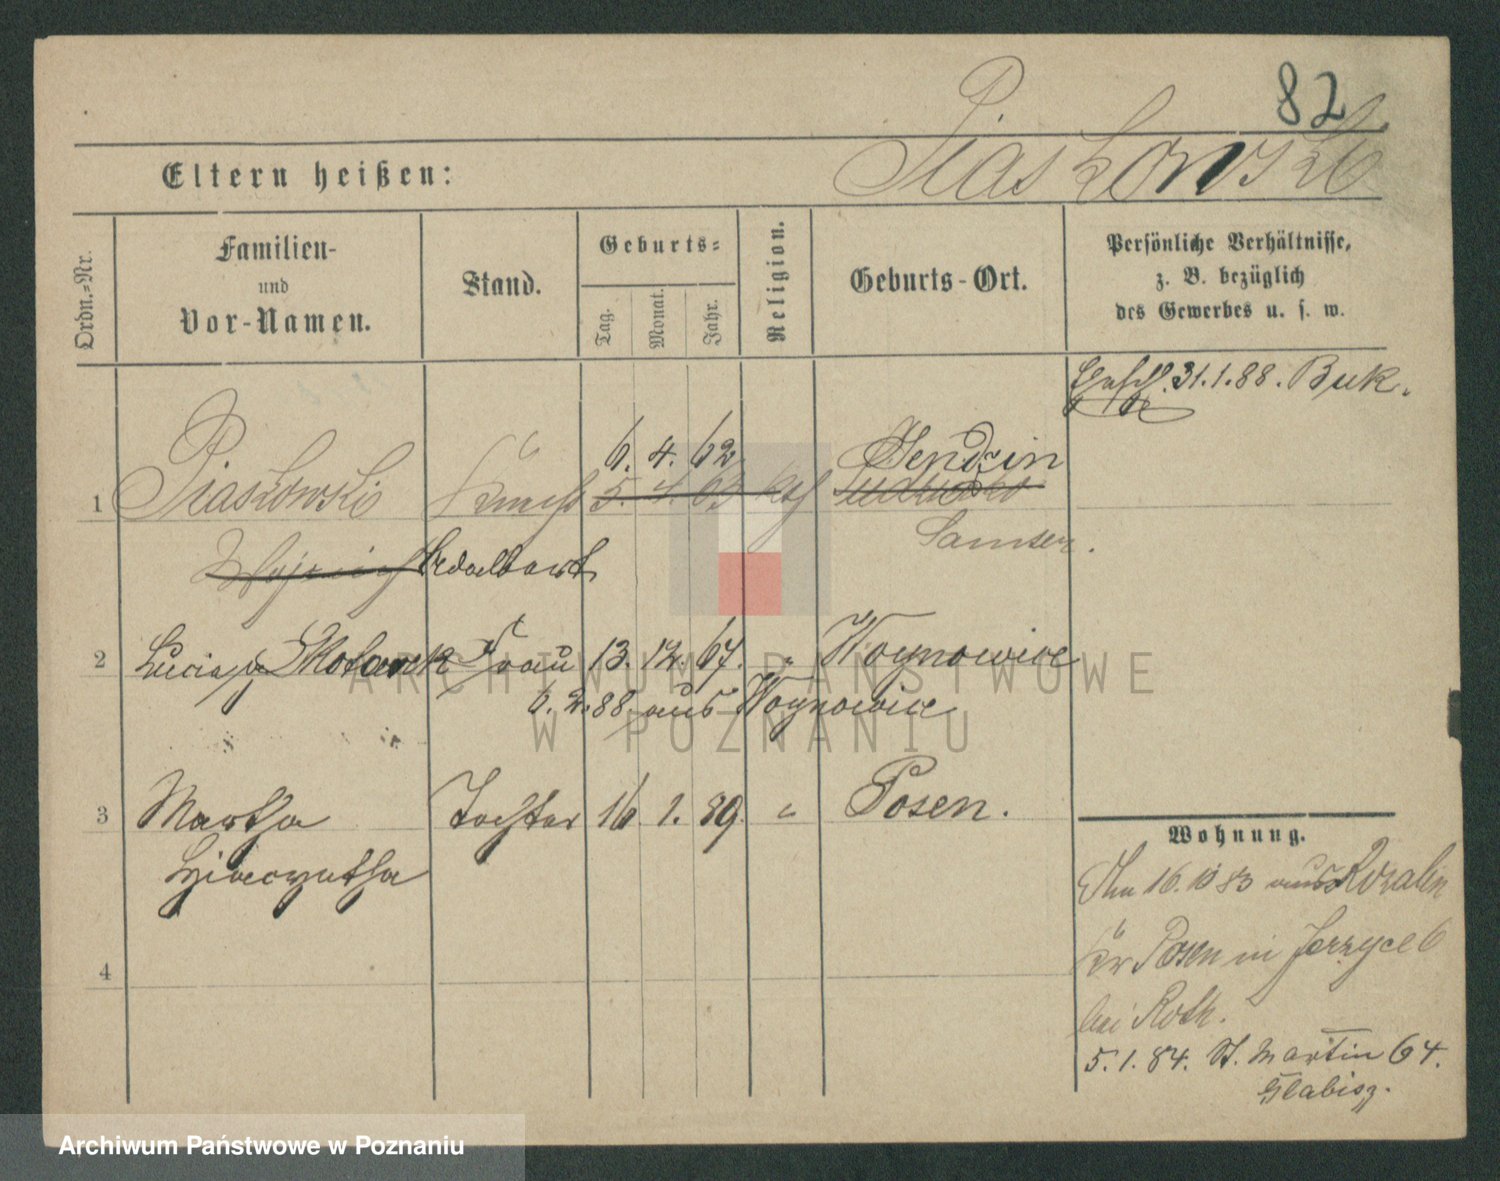 82
Eltern heißen: Piaskowski
Ordn.=Nr. Familien- und Vor-Namen. Stand. Geburts= Tag. Monat. Jahr. Religion. Geburts-Ort. Persönliche Verhältnisse, z. B. bezüglich des Gewerbes u. s. w.
31.1.88. Buk.
6. 4. 62 Sendzin
1 Piaskowski Knecht 5. 4. 63 kth
Samter.
Adalbert
2 Lucia Frau 13. 12. 67. " Woynowice
6. 2. 88. aus Woynowice
3 Martha Tochter 16. 1. 89. " Posen.
Hiacyntha
Wohnung.
16. 10 83 aus
Kr Posen in Jerzyce 6
bei Roth.
4
5. 1. 84. St. Martin 64.
Glabisz.
ARCHIWUM PAŃSTWOWE
W POZNANIU
Archiwum Państwowe w Poznaniu